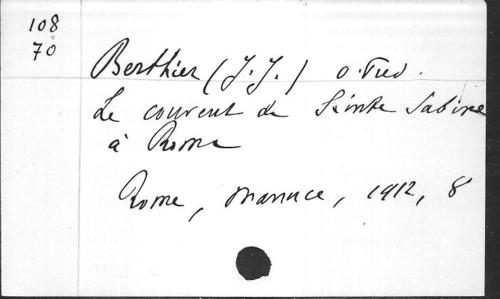 108
70
Berthier (J.J.) O. Pred.
Le couvent de Sainte Sabine
à Rome
Rome, Manuce, 1912, 8